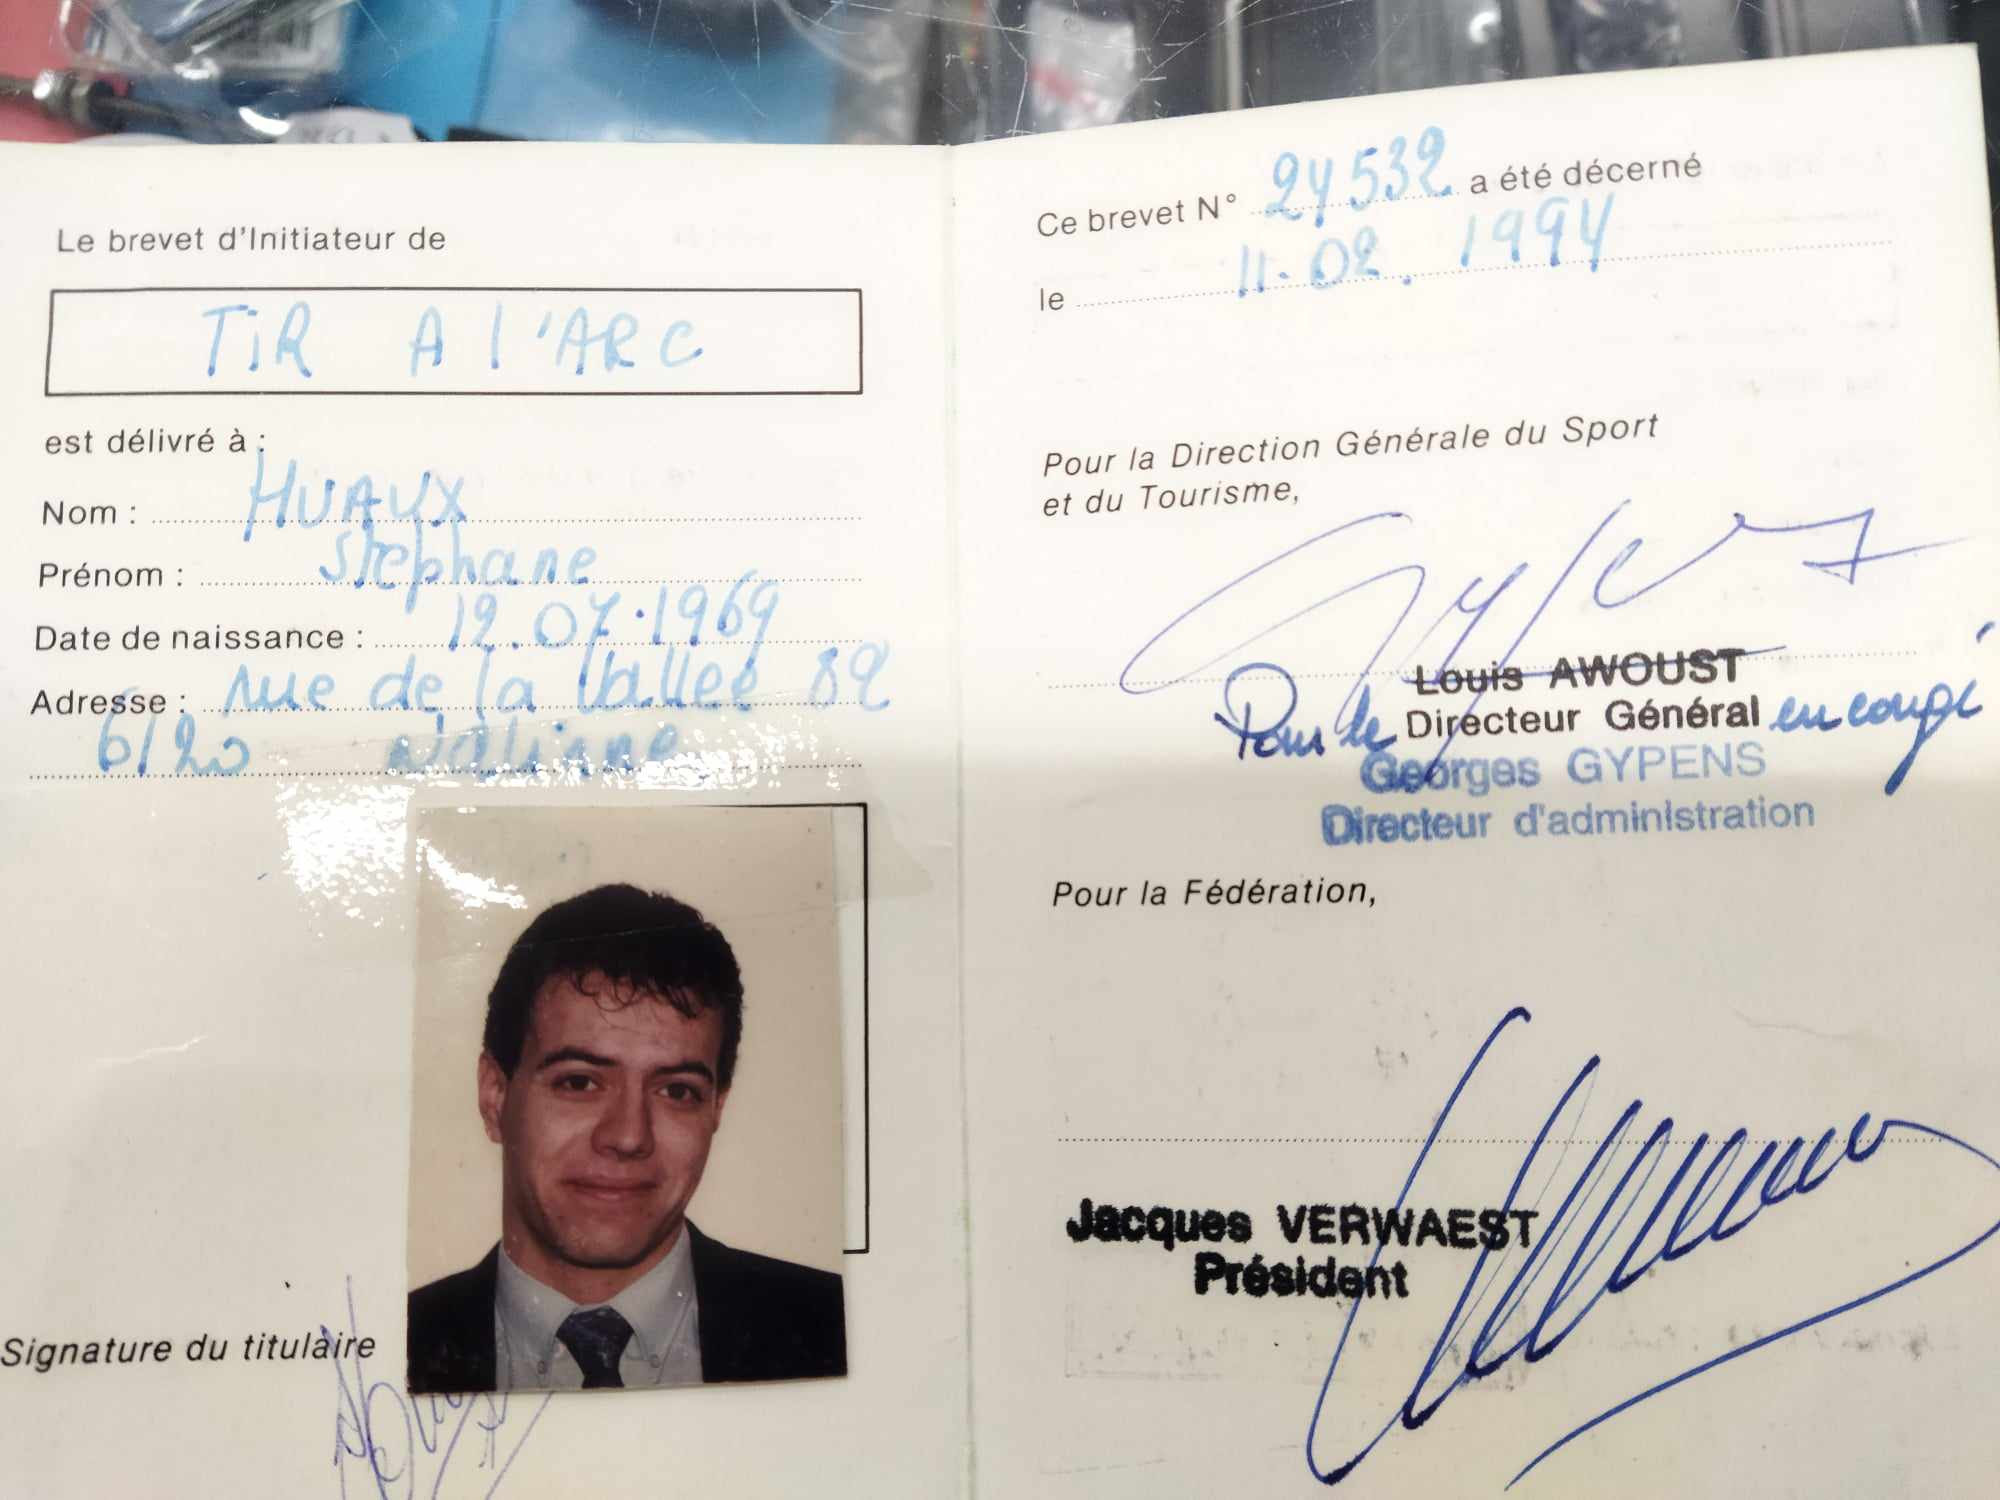 Le brevet d'Initiateur de
TIR A l'ARC
est délivré à :
Nom : HUAUX
Prénom : Stéphane
Date de naissance : 12.07.1969
Adresse : rue de la Vallée 82
6120
Signature du titulaire
Ce brevet N° 24532 a été décerné
le 11.02.1994
Pour la Direction Générale du Sport
et du Tourisme,
Louis AWOUST
Pour le Directeur Général en congé
Georges GYPENS
Directeur d'administration
Pour la Fédération,
Jacques VERWAEST
Président